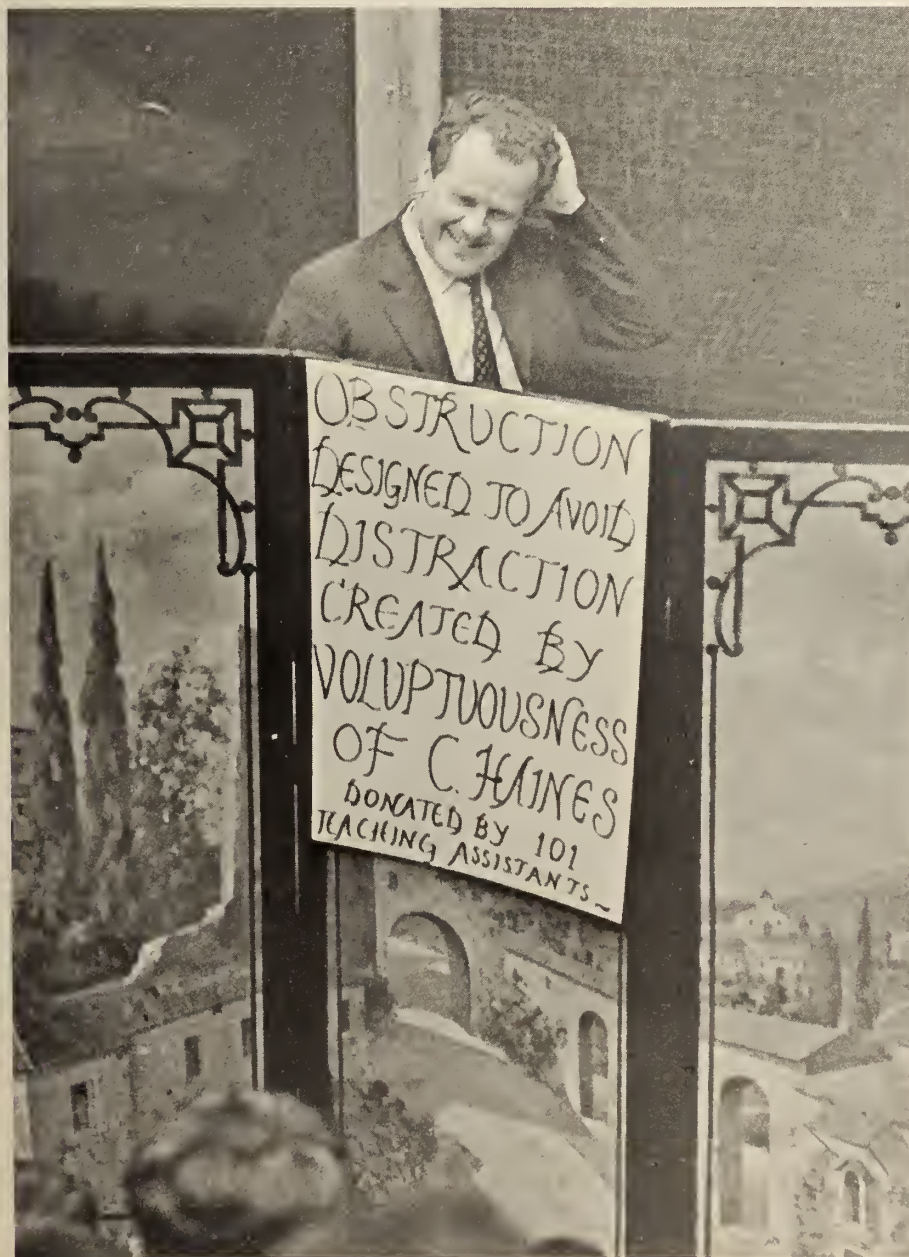 OBSTRUCTION
DESIGNED TO AVOID
DISTRACTION
CREATED BY
VOLUPTUOUSNESS
OF C. HAINES
DONATED BY 101
TEACHING ASSISTANTS~